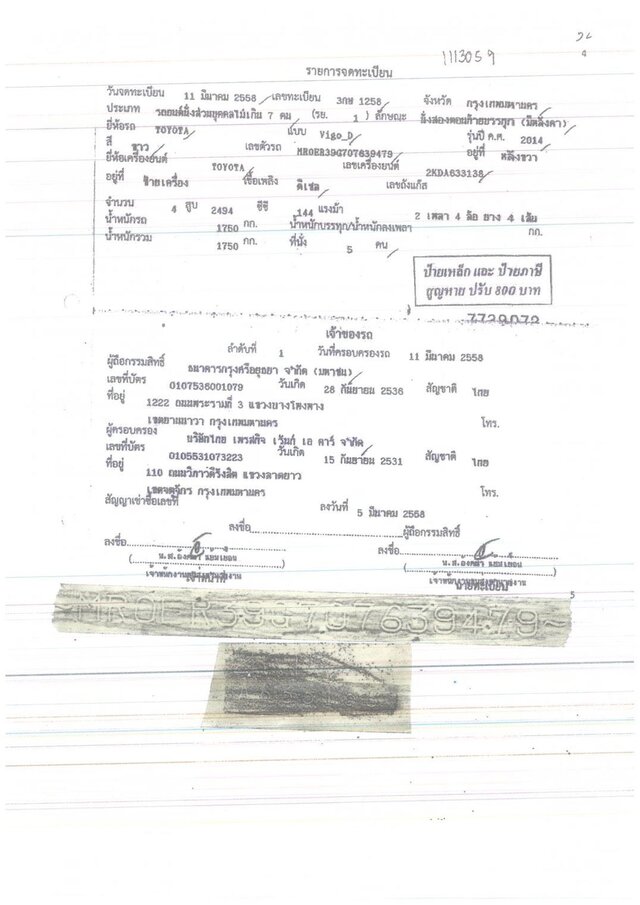 1113059
4
รายการจดทะเบียน
วันจดทะเบียน 11 มีนาคม 2558 เลขทะเบียน 3กษ 1258 จังหวัด กรุงเทพมหานคร
ประเภท รถยนต์นั่งส่วนบุคคลไม่เกิน 7 คน (รย. 1) ลักษณะ นั่งสองตอนท้ายบรรทุก (มีหลังคา)
ยี่ห้อรถ TOYOTA แบบ Vigo_D รุ่นปี ค.ศ. 2014
สี ขาว เลขตัวรถ MR0ER39G707639479 อยู่ที่ หลังขวา
ยี่ห้อเครื่องยนต์ TOYOTA เลขเครื่องยนต์ 2KDA633138
อยู่ที่ ซ้ายเครื่อง เชื้อเพลิง ดีเซล เลขถังแก๊ส
จำนวน 4 สูบ 2494 ซีซี 144 แรงม้า 2 เพลา 4 ล้อ ยาง 4 เส้น
น้ำหนักรถ 1750 กก. น้ำหนักบรรทุก/น้ำหนักลงเพลา กก.
น้ำหนักรวม 1750 กก. ที่นั่ง 5 คน
ป้ายเหล็ก และ ป้ายภาษี
สูญหาย ปรับ 800 บาท
7739072
เจ้าของรถ
ลำดับที่ 1 วันที่ครอบครองรถ 11 มีนาคม 2558
ผู้ถือกรรมสิทธิ์ ธนาคารกรุงศรีอยุธยา จำกัด (มหาชน)
เลขที่บัตร 0107536001079 วันเกิด 28 กันยายน 2536 สัญชาติ ไทย
ที่อยู่ 1222 ถนนพระรามที่ 3 แขวงบางโพงพาง
เขตยานนาวา กรุงเทพมหานคร โทร.
ผู้ครอบครอง บริษัทไทย เพรสทิจ เร้นท์ เอ คาร์ จำกัด
เลขที่บัตร 0105531073223 วันเกิด 15 กันยายน 2531 สัญชาติ ไทย
ที่อยู่ 110 ถนนวิภาวดีรังสิต แขวงลาดยาว
เขตจตุจักร กรุงเทพมหานคร โทร.
สัญญาเช่าซื้อเลขที่ ลงวันที่ 5 มีนาคม 2558
ลงชื่อ ผู้ถือกรรมสิทธิ์
ลงชื่อ ลงชื่อ
เจ้าหน้าที่ นายทะเบียน
5